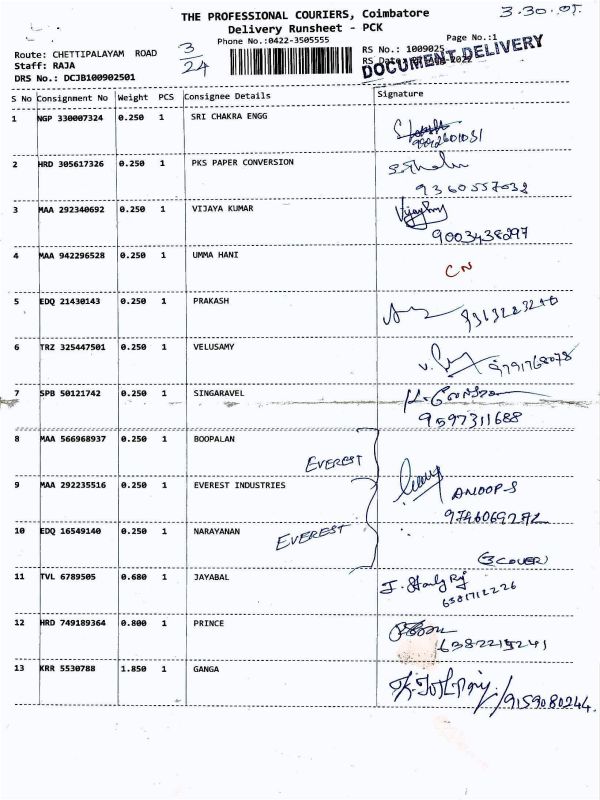 THE PROFESSIONAL COURIERS, Coimbatore
3.30.
Delivery Runsheet - PCK
Phone No.:0422-3505555
Page No.:1
Route: CHETTIPALAYAM ROAD
3/24
RS No.: 1009025
Staff: RAJA
RS Date:
DOCUMENT DELIVERY
DRS No.: DCJB100902501
S No Consignment No Weight PCS Consignee Details Signature
1 NGP 330007324 0.250 1 SRI CHAKRA ENGG
2 HRD 305617326 0.250 1 PKS PAPER CONVERSION
9360557032
3 MAA 292340692 0.250 1 VIJAYA KUMAR
9003438297
4 MAA 942296528 0.250 1 UMMA HANI CN
5 EDQ 21430143 0.250 1 PRAKASH
6 TRZ 325447501 0.250 1 VELUSAMY 9791768078
7 SPB 50121742 0.250 1 SINGARAVEL
9597311688
8 MAA 566968937 0.250 1 BOOPALAN
EVEREST
9 MAA 292235516 0.250 1 EVEREST INDUSTRIES
ANOOP-S
10 EDQ 16549140 0.250 1 NARAYANAN EVEREST
(3 COVER)
11 TVL 6789505 0.680 1 JAYABAL
6381712226
12 HRD 749189364 0.800 1 PRINCE
13 KRR 5530788 1.850 1 GANGA
9159080244.